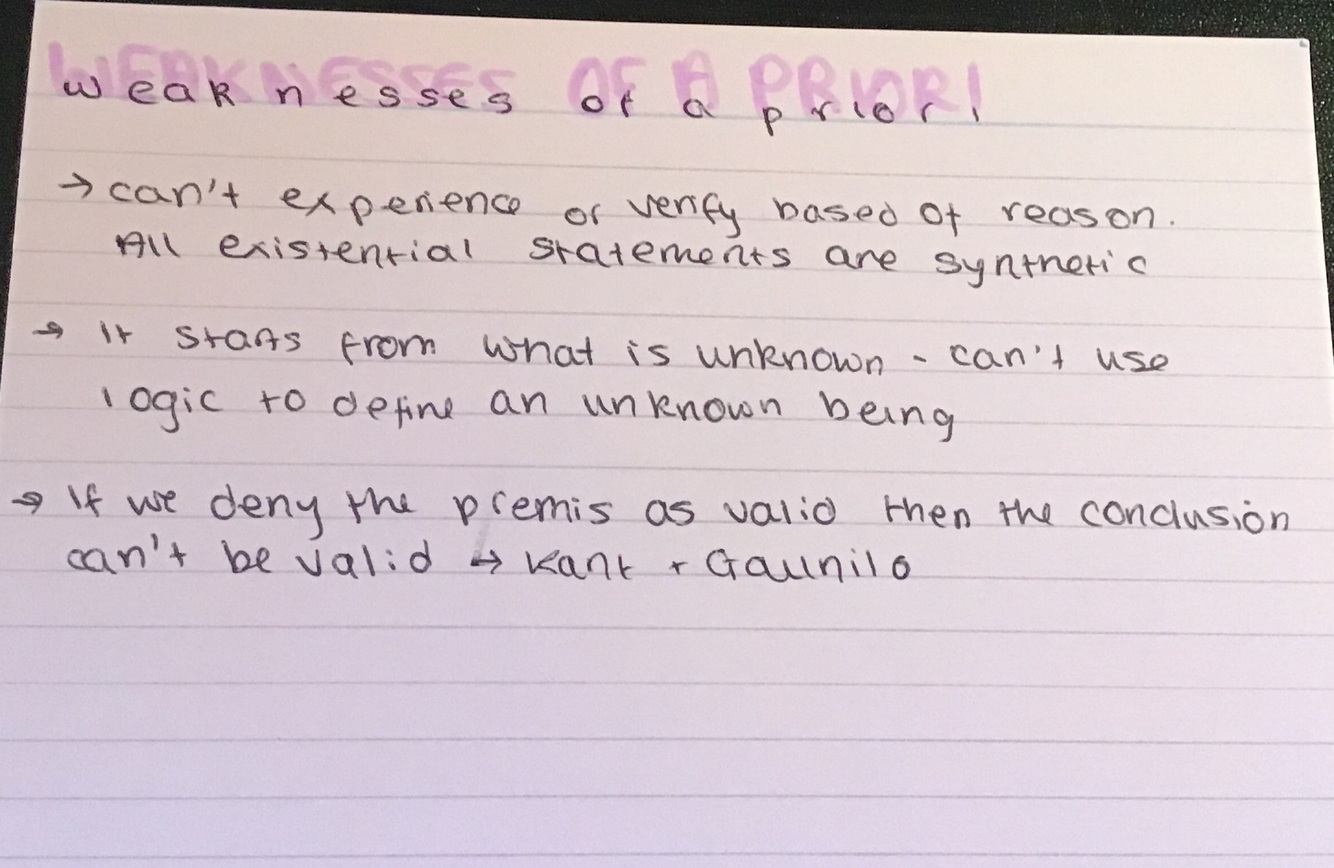 WEAKNESSES OF A PRIORI
weaknesses of a priori
→ can't experience or verify based of reason.
All existential statements are synthetic
→ It starts from what is unknown - can't use
logic to define an unknown being
→ If we deny the premis as valid then the conclusion
can't be valid → Kant + Gaunilo